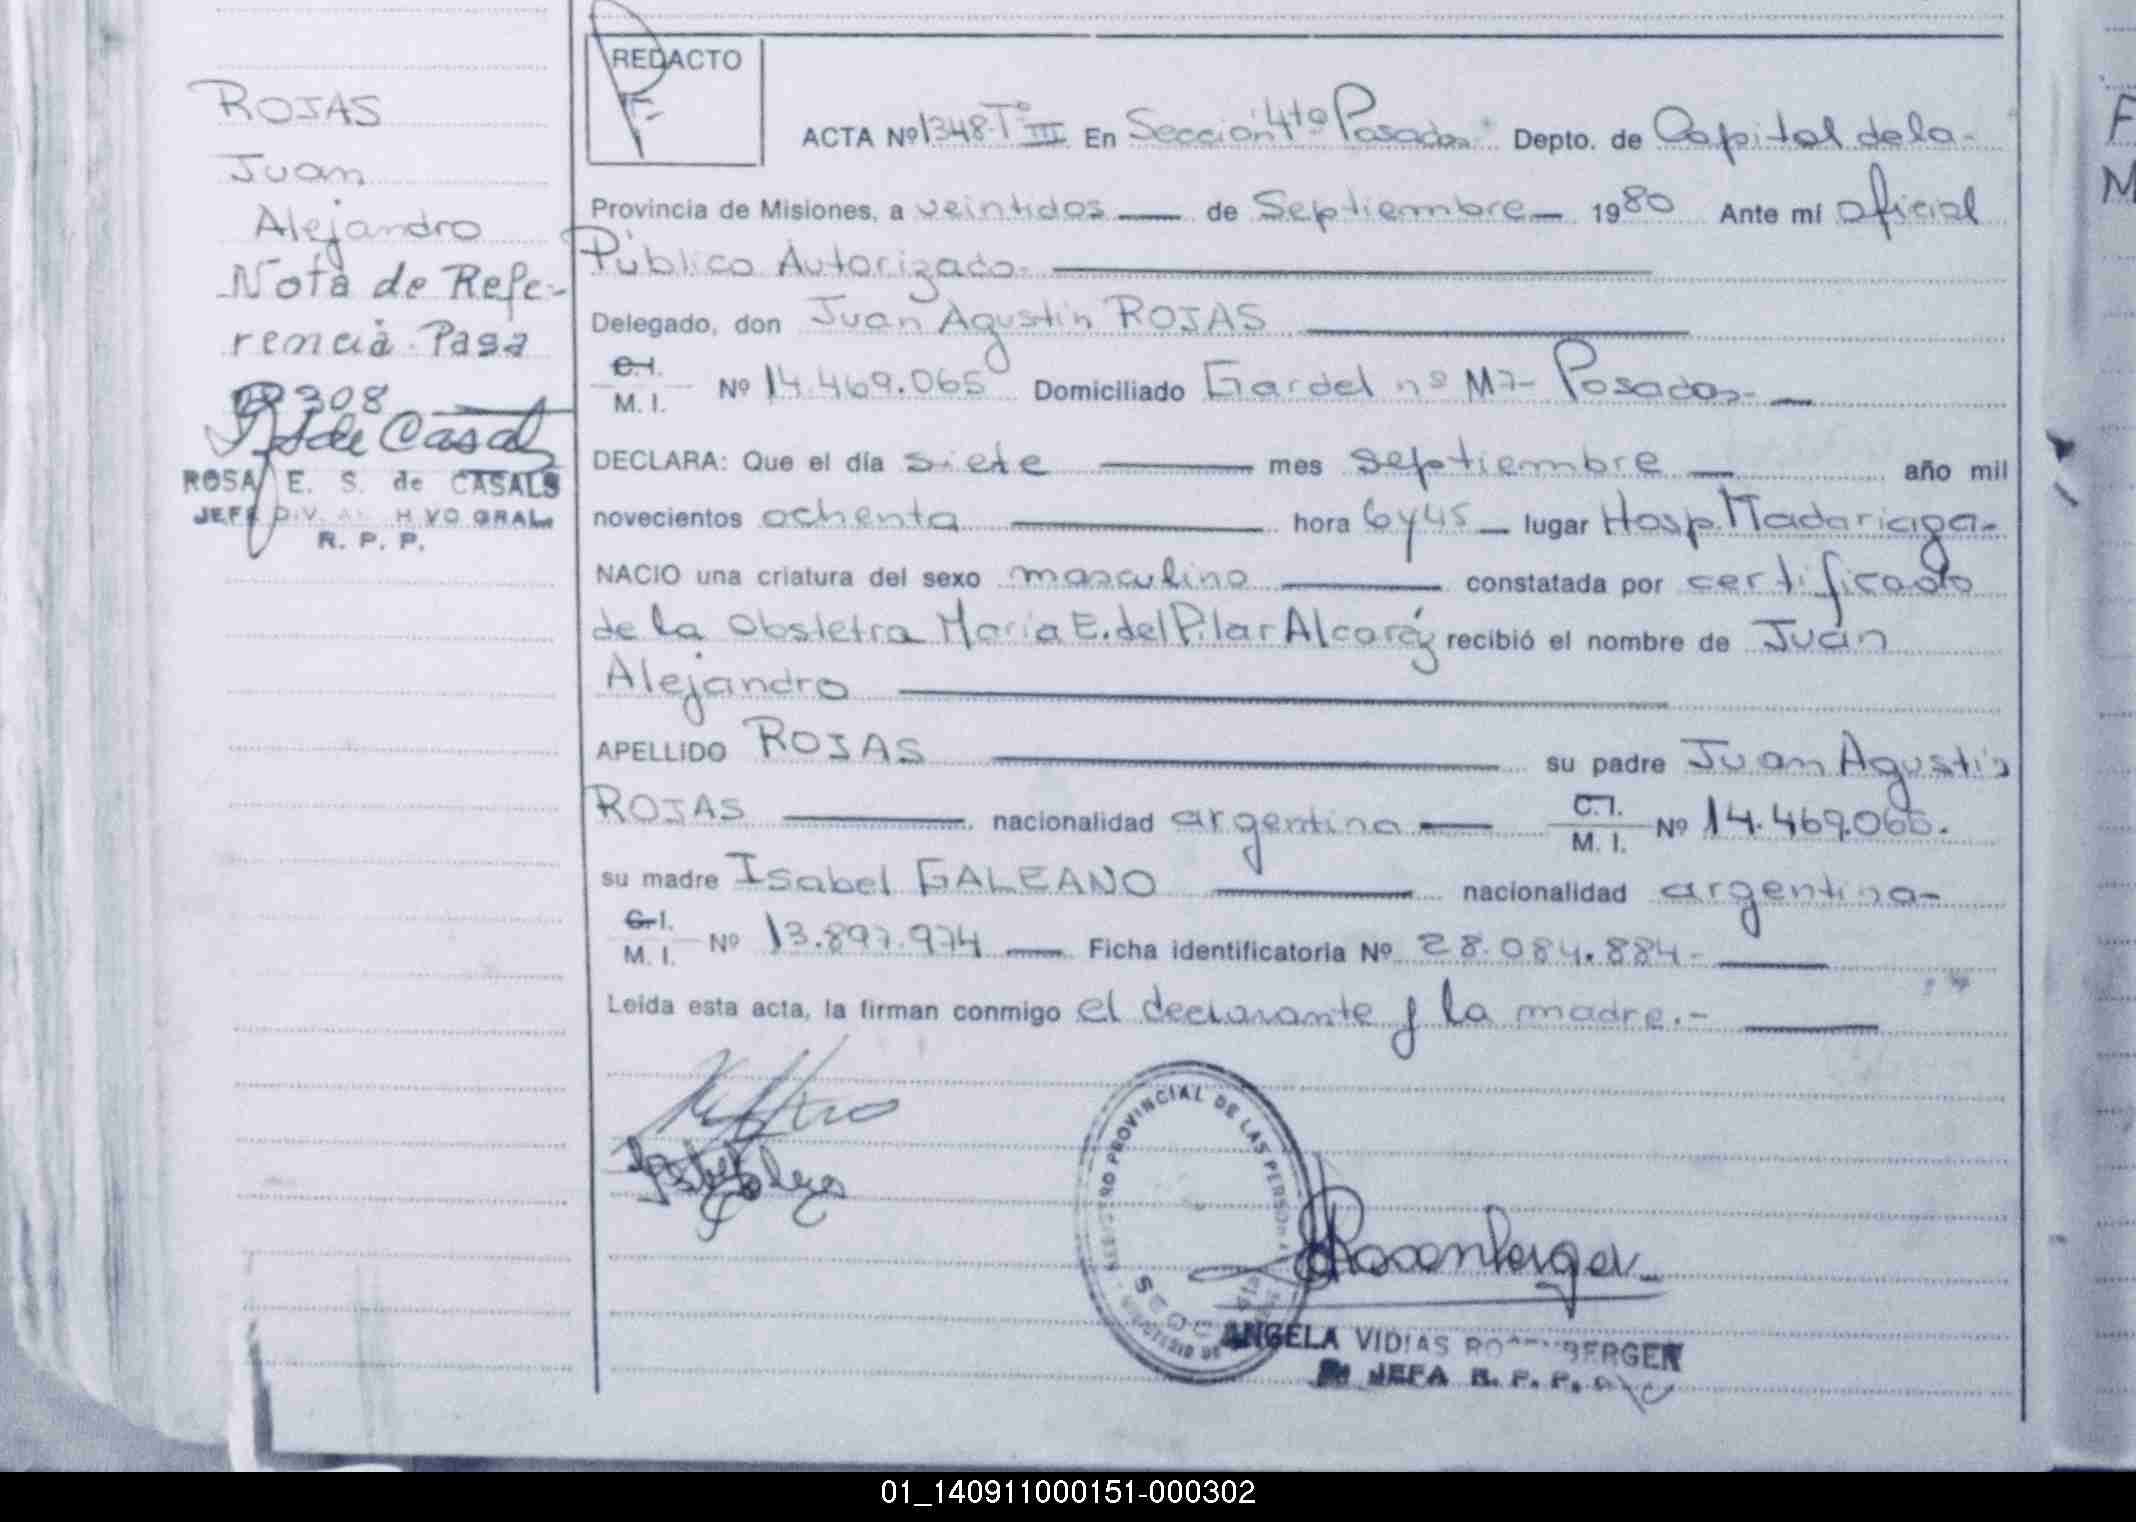 ROJAS
Juan
Alejandro
Nota de Refe-
rencia Pasa
308
ROSA E. S. de CASALS
JEFE DIV. ARCHIVO GRAL.
R. P. P.
REDACTO
ACTA Nº 1348-Tº III En Sección 4ta Posadas Depto. de Capital de la-
Provincia de Misiones, a veintidos de Septiembre 1980 Ante mí oficial
Público Autorizado-
Delegado, don Juan Agustín ROJAS
C.I.
M. I. Nº 14.469.065 Domiciliado Gardel nº M7- Posadas-
DECLARA: Que el día siete mes septiembre año mil
novecientos ochenta hora 6y45 lugar Hosp. Madariaga-
NACIO una criatura del sexo masculino constatada por certificado
de la Obstetra María E. del Pilar Alcaráz recibió el nombre de Juan
Alejandro
APELLIDO ROJAS su padre Juan Agustín
ROJAS nacionalidad argentina C.I.
M. I. Nº 14.469.065.
su madre Isabel GALEANO nacionalidad argentina-
C.I.
M. I. Nº 13.897.974 Ficha identificatoria Nº 28.084.884-
Leida esta acta, la firman conmigo el declarante y la madre.-
REGISTRO PROVINCIAL DE LAS PERSONAS
Rosenberger
ANGELA VIDIAS ROSENBERGER
JEFA R. P. P.
F
M
01_140911000151-000302